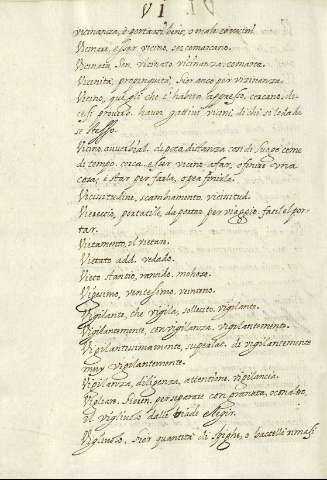 VI
vicinanza, è portarsi bene, o male co vicini.
Vicinare, essar vicino, ser comarcano.
Vicinato, Sen. vicinato vicinanza, comarca.
Vicinità, propinquità, Sior anco per vicinanza.
Vicino, quegli che t'habita appresso, cercano, de
cesi proverb. hauer gattivi vicini, di chi si loda da
se stesso.
Vicino, auuerbial. di poca distanza con di luogo come
di tempo, circa. essar vicino a far, o finire una
cosa, è star per farla, o per finirla.
Vicissitudine, scambiamento, vicisitud.
Viereccio, portatile, da portar per viaggio, facil el por-
tar.
Vietamento, el vietare.
Vietato add. vedado.
Vieto stantio, rancido, mohoso.
Vigesimo, ventesimo, veinteno.
Vigilante, che vigila, sollecito, vigilante.
Vigilantemente, con vigilanza, vigilantemente.
Vigilantissimamente, superlat. di vigilantemente
muy vigilantemente.
Vigilanza, diligenza, attentione, vigilancia.
Vigliare, separare con granata, o con altro,
el vigliuolo dalle biade
Vigliuolo, Sior quantità di spighe, o baccelli rimasi